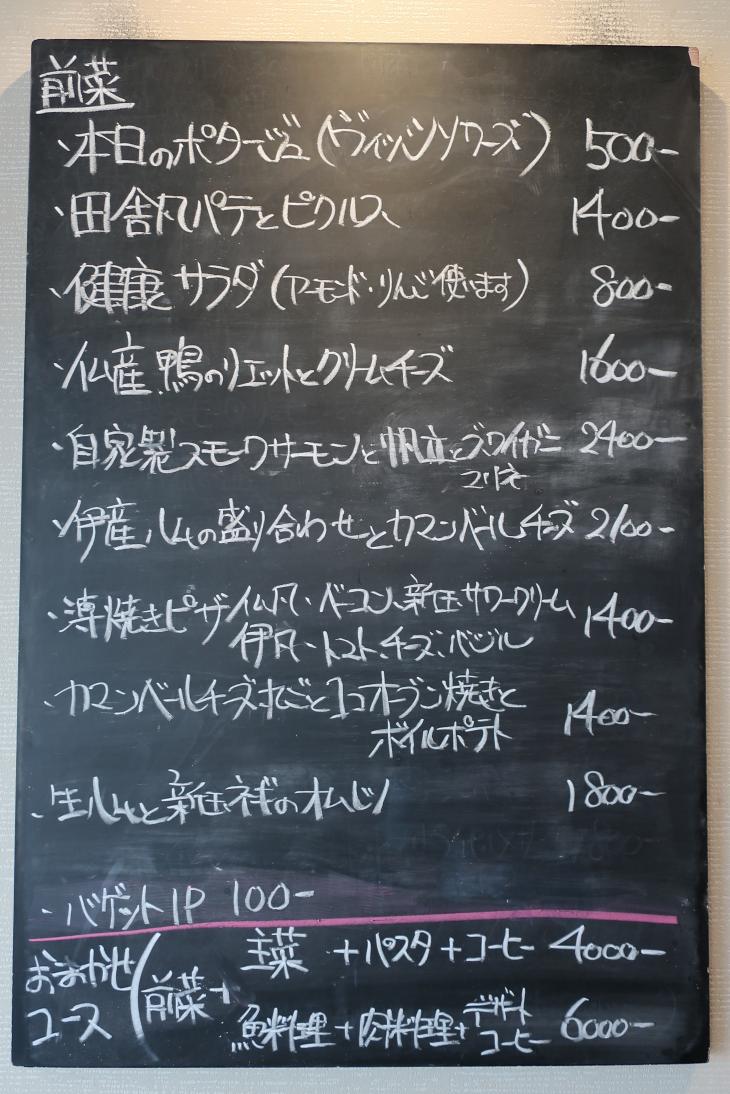 前菜
・本日のポタージュ(ヴィシソワーズ) 500-
・田舎風パテとピクルス 1400-
・健康サラダ(アーモンド・りんご使います) 800-
・仏産鴨のリエットとクリームチーズ 1600-
・自家製スモークサーモンと帆立とズワイガニ 2400-
マリネ
・伊産ハムの盛り合わせとカマンベールチーズ 2100-
・薄焼きピザ/仏風・ベーコン、新玉、サワークリーム 1400-
伊風・トマト、チーズ、バジル
・カマンベールチーズ丸ごと1コオーブン焼きと 1400-
ボイルポテト
・生ハムと新玉ネギのオムレツ 1800-
・バゲット1P 100-
おまかせコース(前菜+
主菜+パスタ+コーヒー 4000-
魚料理+肉料理+デザート コーヒー 6000-